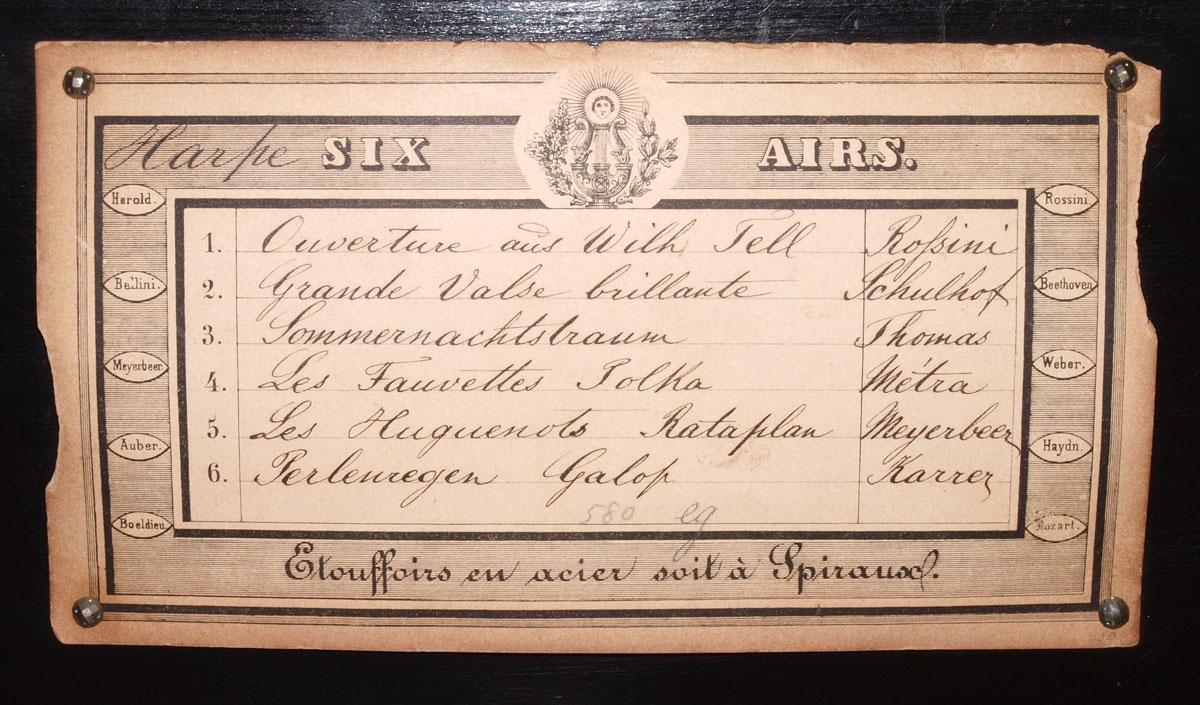 Harpe SIX AIRS.
Herold.
Rossini.
Bellini.
Beethoven
Meyerbeer.
Weber.
Auber.
Haydn.
Boeldieu
Mozart.
1. Ouverture aus Wilh Tell Roßini
2. Grande Valse brillante Schulhof
3. Sommernachtstraum Thomas
4. Les Fauvettes Polka Métra
5. Les Huguenots Rataplan Meyerbeer
6. Perlenregen Galop Karrer
580 eg
Etouffoirs en acier soit à Spiraux.